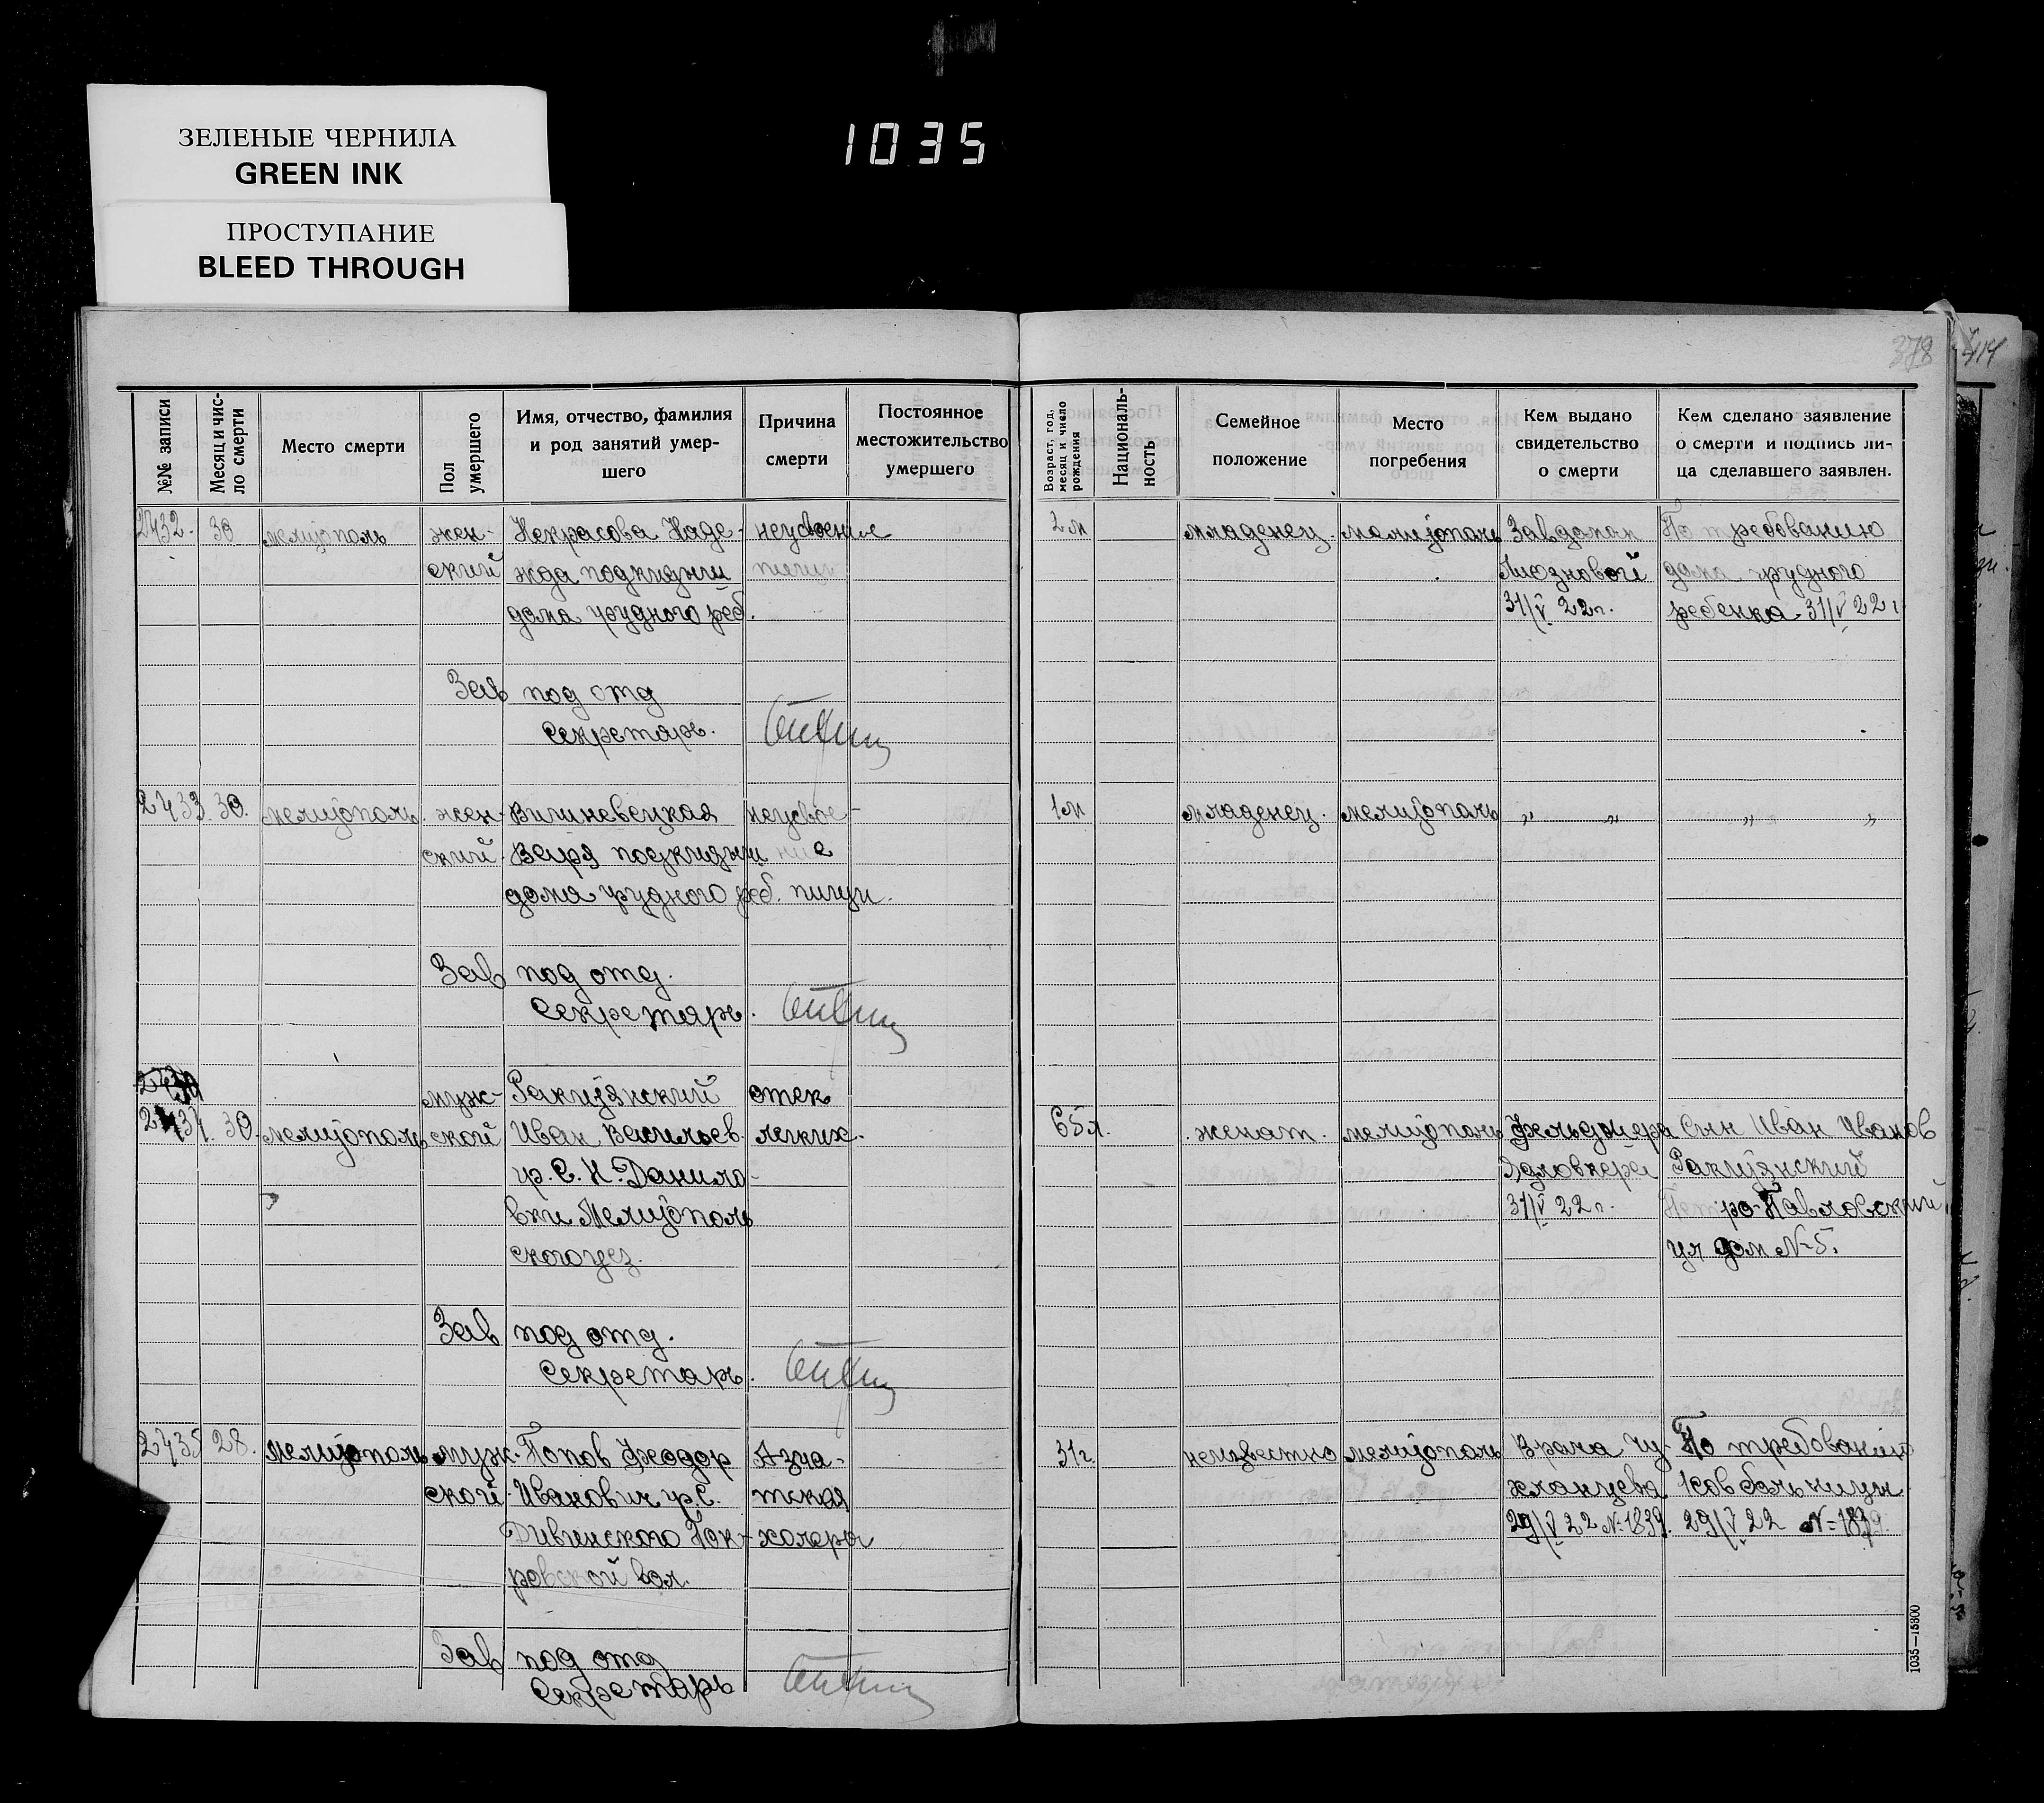 ЗЕЛЕНЫЕ ЧЕРНИЛА
GREEN INK
ПРОСТУПАНИЕ
BLEED THROUGH
1035
378 414
№№ записи
Месяц и чис-
ло смерти
Место смерти
Пол
умершего
Имя, отчество, фамилия
и род занятий умер-
шего
Причина
смерти
Постоянное
местожительство
умершего
Возраст, год,
месяц и число
рождения
Националь-
ность
Семейное
положение
Место
погребения
Кем выдано
свидетельство
о смерти
Кем сделано заявление
о смерти и подпись ли-
ца сделавшего заявлен.
2432. 30 мелитополь жен- Некрасова Наде- неусвоение 2 м младенец мелитополь Завдомом По требованию
ский жда подкидыш пищи дома грудного
дома грудного реб. 31/V 22г. ребенка 31/V 22г
Зав под отд
Секретарь.
2433. 30. мелитополь. жен- Вишневецкая неусвое- 1 м младенец. мелитополь " " " "
ский Варя подкидыш ние
дома грудного реб. пищи.
Зав под отд.
Секретарь.
муж- отек
2434. 30. мелитополь ской Иван Васильев. легких. 65 л. женат. мелитополь Фельдшера Сын Иван Иванов
гр. С. Н. Данило-
вки Мелитополь 31/V 22г. Петро-Павловский
ского уез. ул дом № 5.
Зав под отд.
Секретарь.
2435 28. мелитополь муж- Попов Феодор Азиа- 31г. неизвестно мелитополь Врача По требованию
ской Иванович гр. С. тская
Пок- холера 29/V 22 № 1839. 29/V 22 № 1839.
ровской вол.
Зав под отд
Секретарь
1035—15300